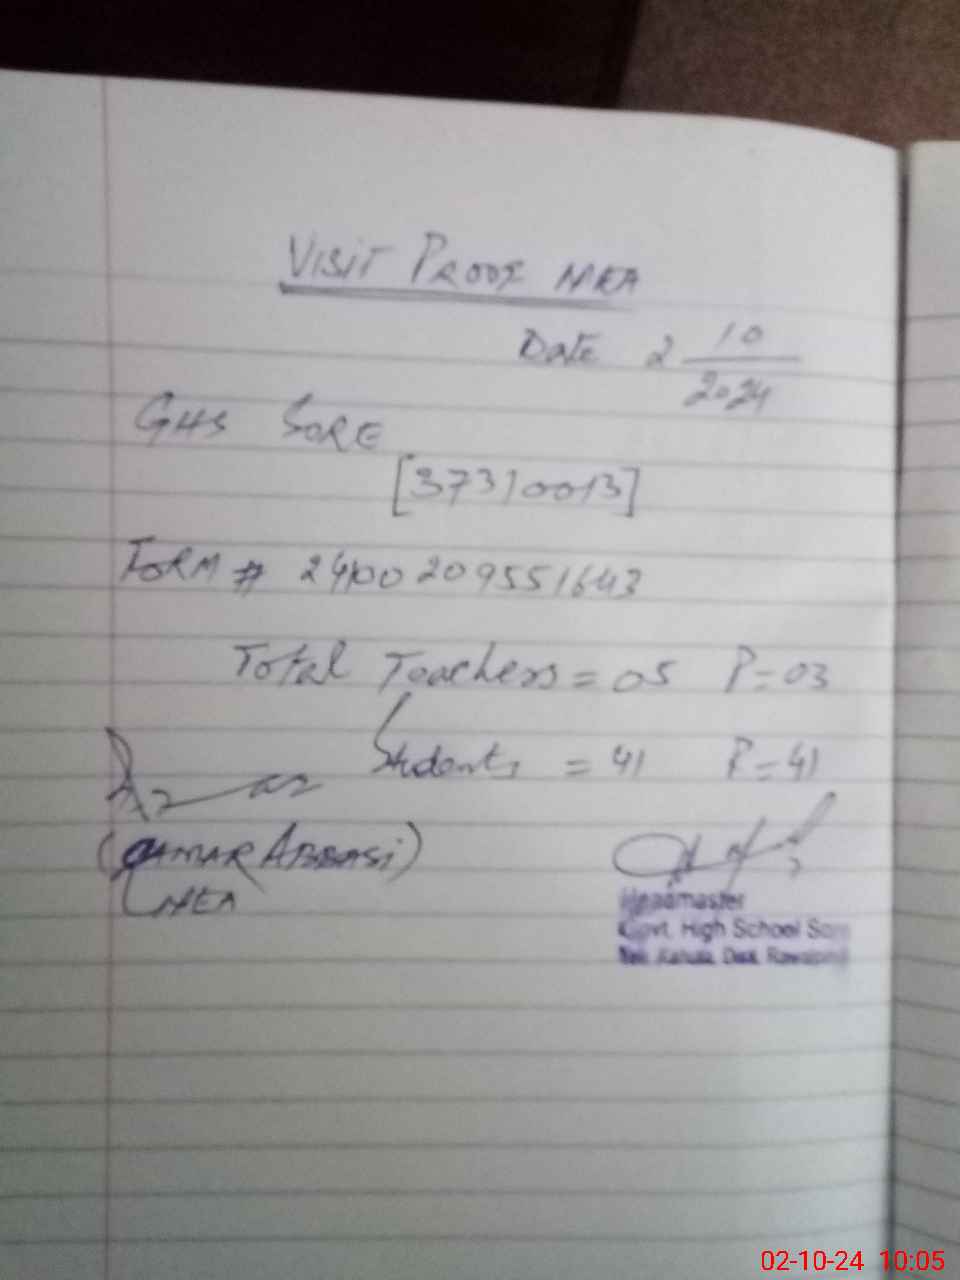 VISIT PROOF MEA
Date 2 10
2024
GHS SORE
[37310013]
FORM # 24100209551643
Total Teachers = 05 P=03
Students = 41 P=41
(QAMAR ABBASI)
MEA
Headmaster
Govt. High School Sore
Teh. Kahuta, Distt. Rawalpindi
02-10-24 10:05